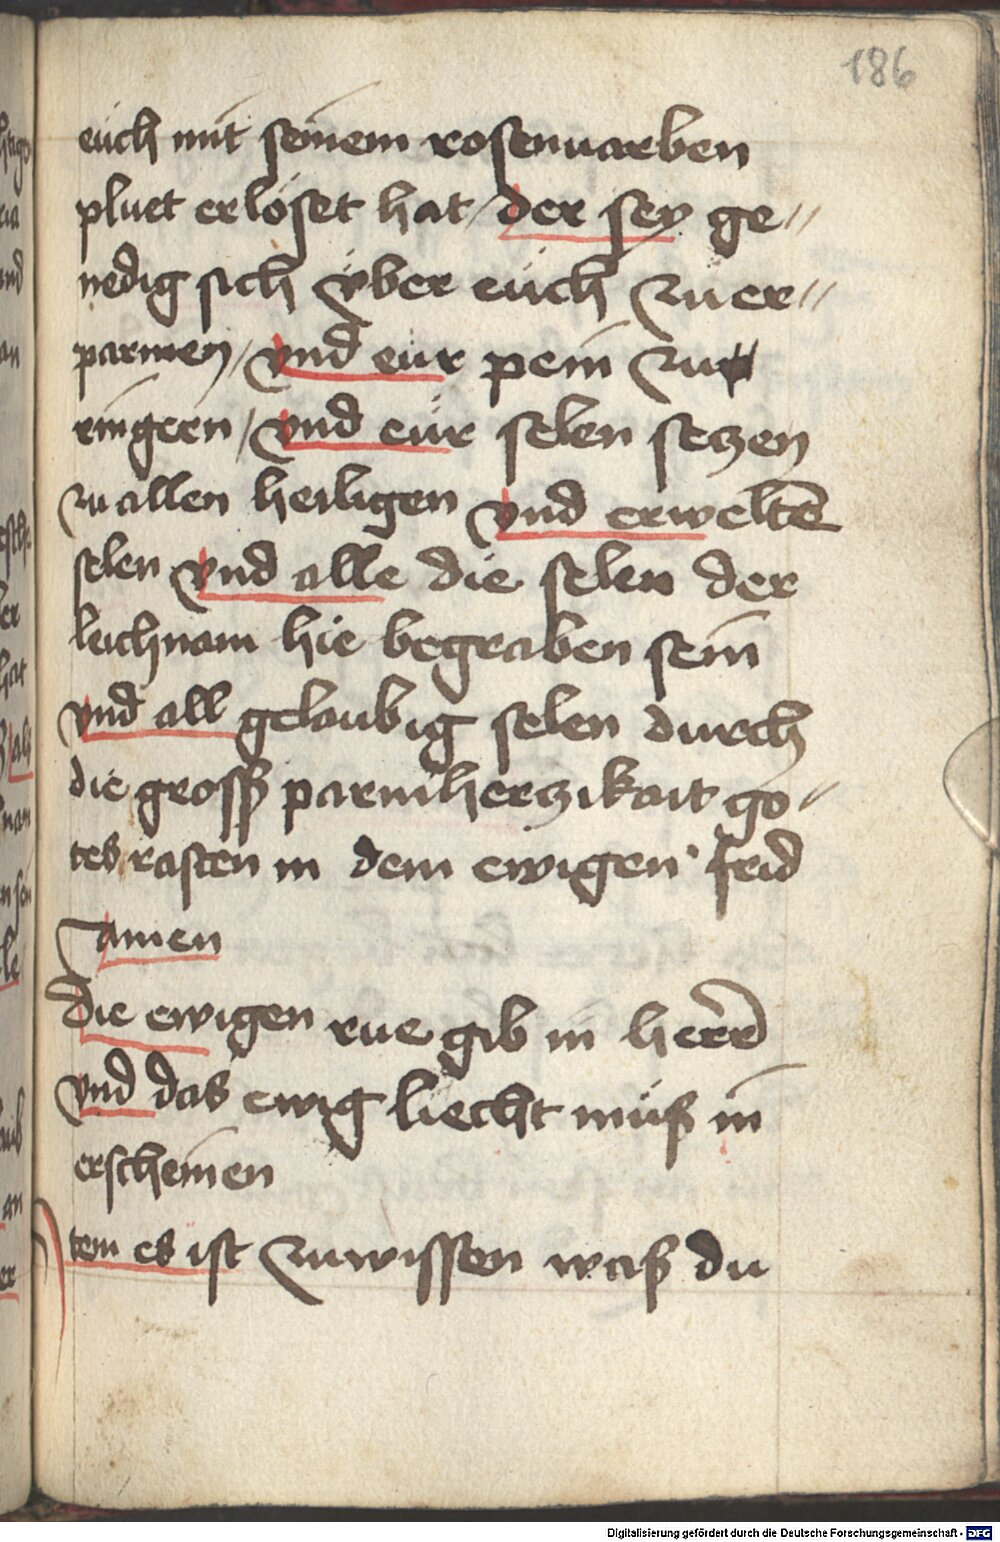 186
euch mit seinem rosenuarben
pluet erlöset hat / der sey ge //
nedig sich vber euch zu er //
parmen / vnd eur pein zu
ringern / vnd eur selen seczen
zu allen heiligen vnd erweltē
selen vnd alle die selen der
leichnam hie begraben sein
vnd all gelaubig selen durch
die grosß parmherczikait go //
tes rasten in dem ewigen frid
Amen
Die ewigen rue gib in herr
vnd das ewig liecht müß in
erscheinen
Item es ist zuwissen waß du
Digitalisierung gefördert durch die Deutsche Forschungsgemeinschaft - DFG